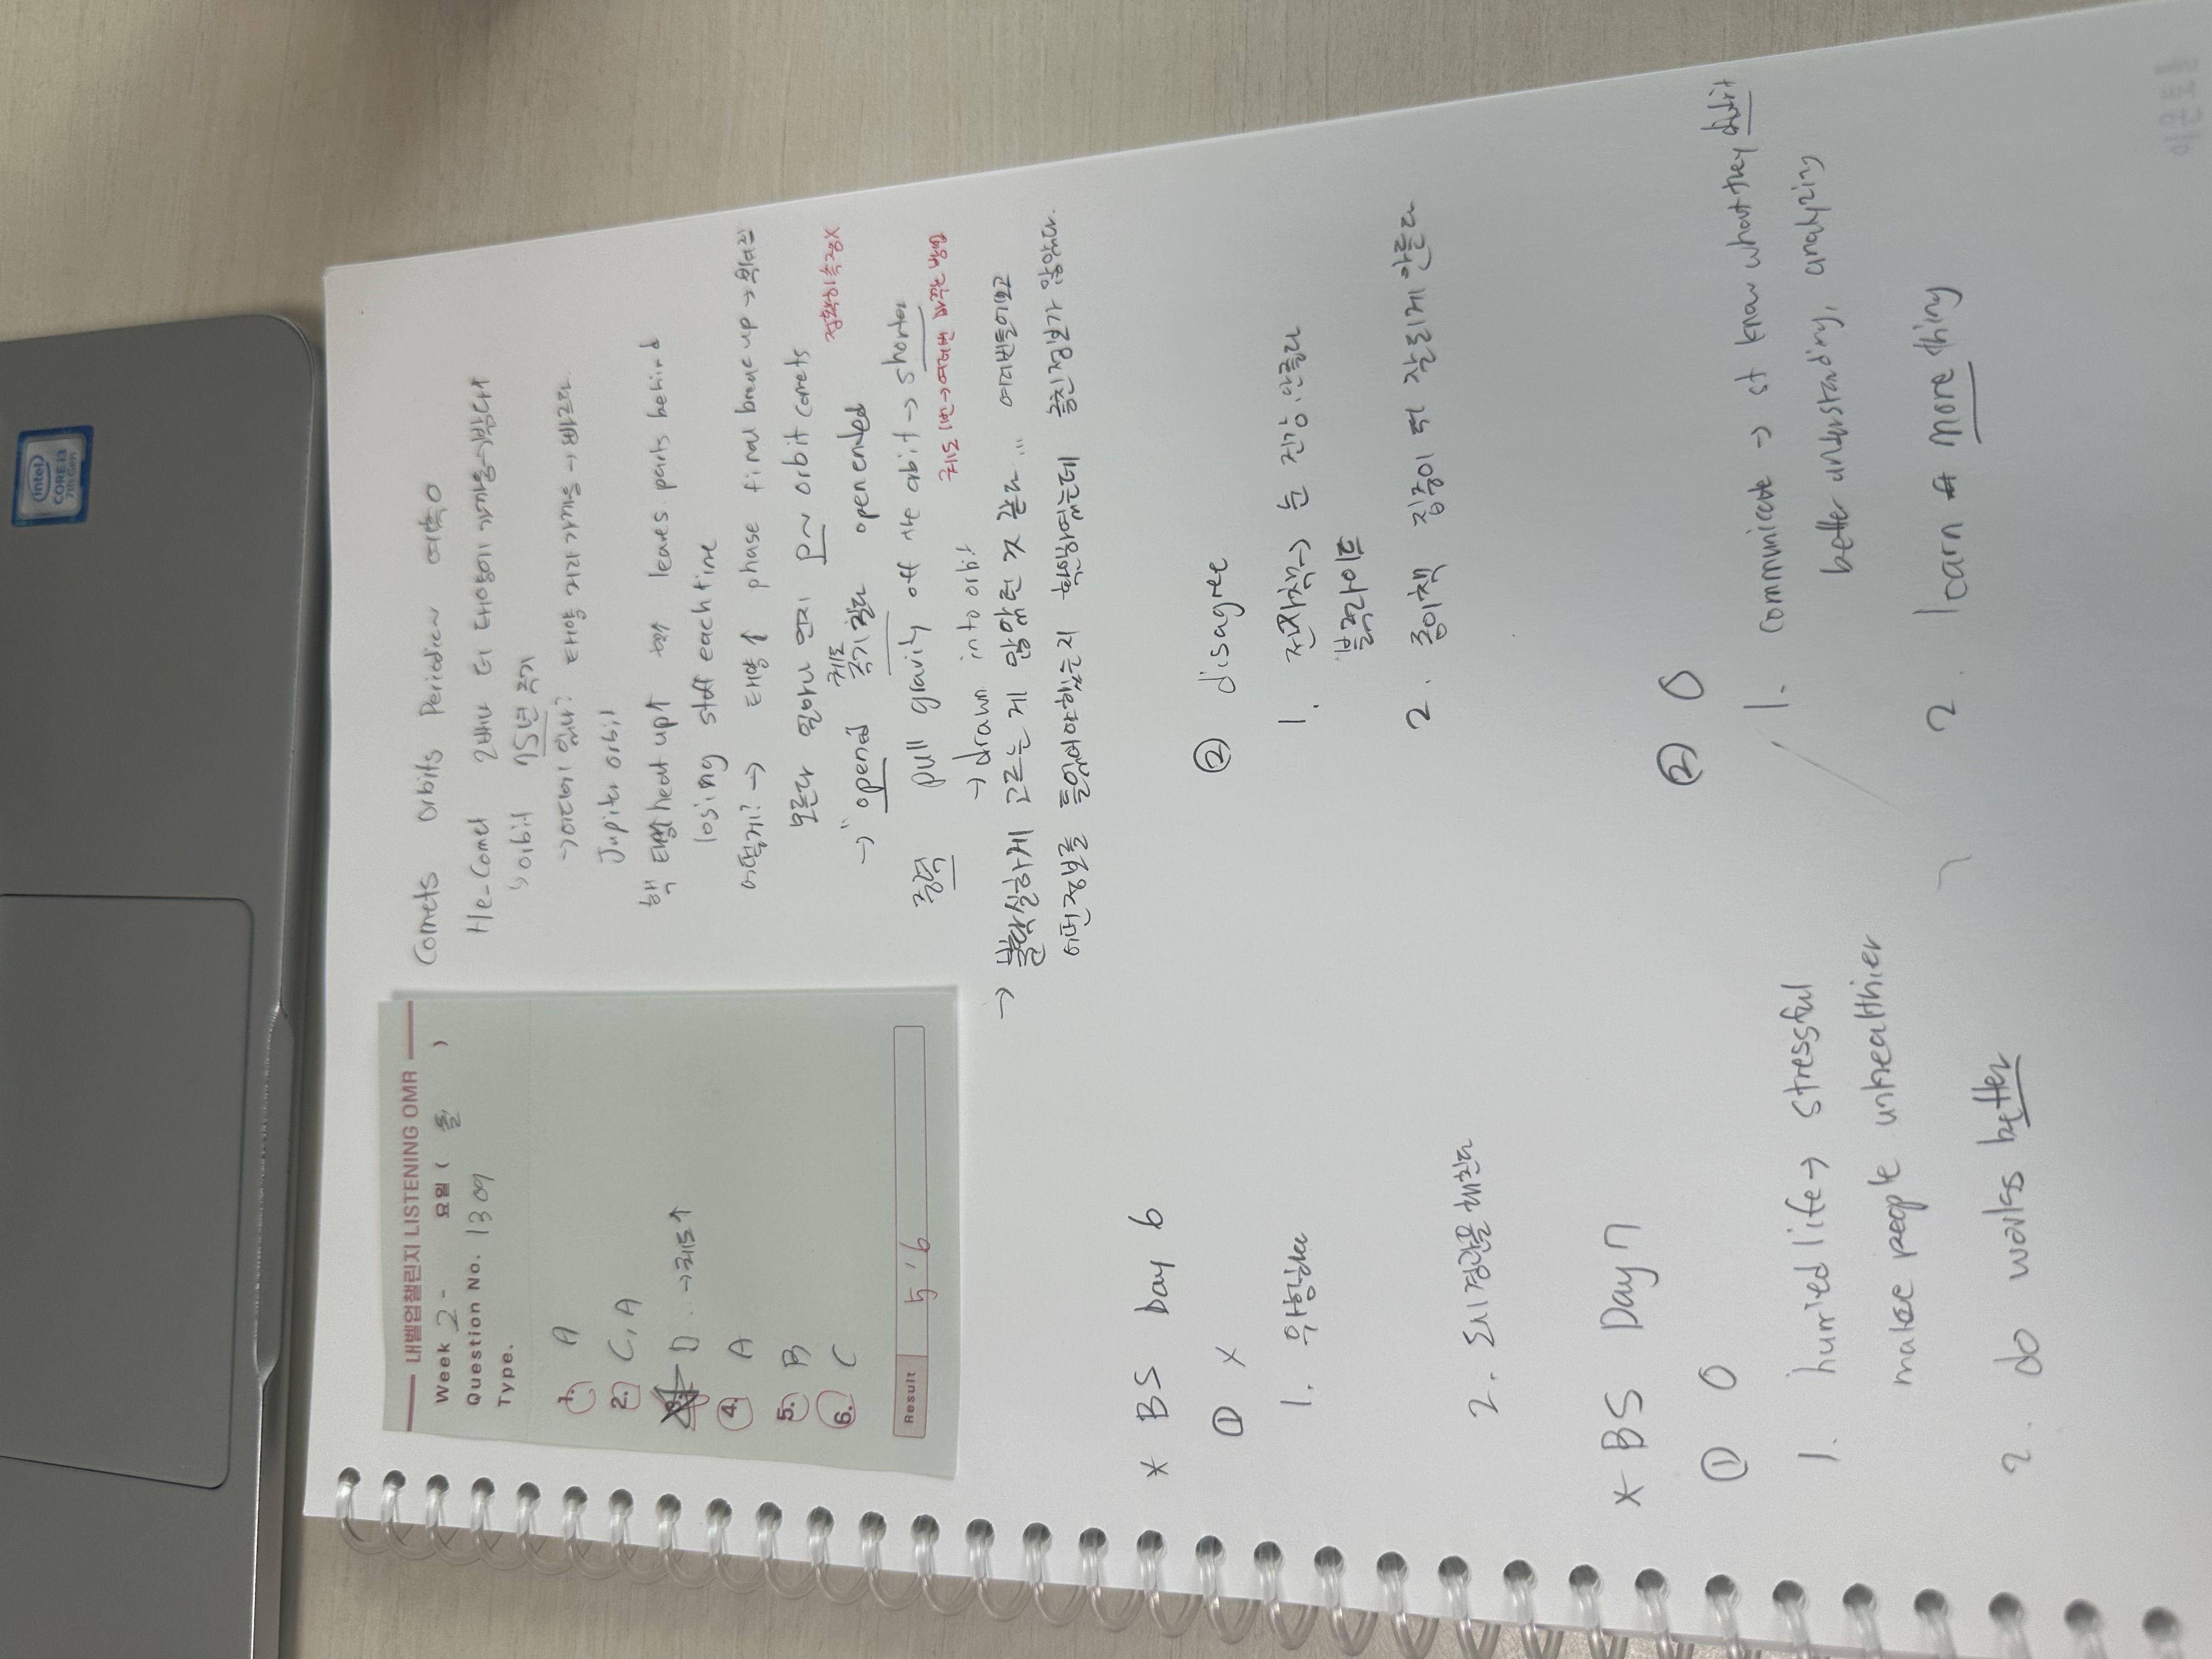 intel
CORE i3
7th Gen
내벨업챌린지 LISTENING OMR
Week 2 - 요일 ( 흘 )
Question No. 1309
Type.
1. A
2. C, A
3. D. →궤도↑
4. A
5. B
6. C
Result 5 / 6
Comets orbits Periodic 여혹
Comet 2배나 더 태양이 가까움→밝다
↳ orbit 75년 주기
→어디에 있나? 태양 거리 가까움→빠르다
Jupiter orbit
핵 heat up↑ leaves parts behind
losing stuff each time
어떻게? → 태양↑ phase final break up →
모른다 orbit comets
정확히 측정X
→ "opened 궤도 주기 길다 open ended
중력 pull gravity off the orbit → shorter
궤도 1번→여러번 바꾸는 방법
→ drawn into orbit
→ 불확실하게 고르는 게 많았던 것 같다... 여러번 들어보고
어떤 정보를 들었어야 하는지 확인하였는데 놓친 정보가 많았다.
* BS Day 6
① X
1. 위험하다
2. 도시경관을 해친다
② disagree
1. 전자책→ 눈 건강 안좋다
블루라이트
2. 종이책 집중이 더 잘되게 만든다
* BS Day 7
① O
1. hurried life → stressful
make people unhealthier
2. do works better
② O
1. communicate → st know what they
better understanding, analyzing
2. learn more thing